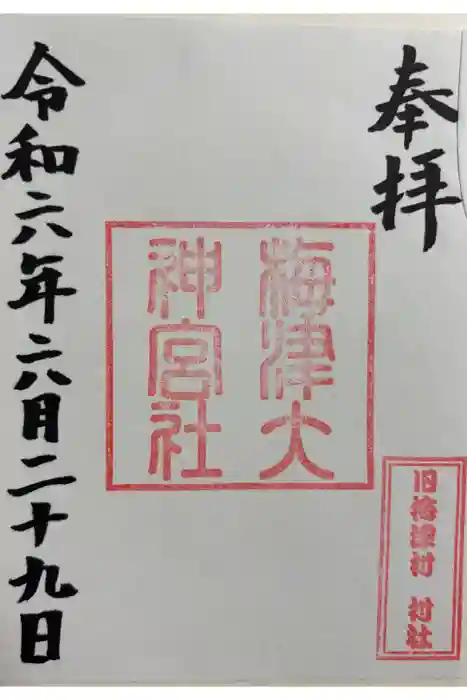 奉拝
旧梅津村 村社
梅津大
神宮社
令和六年六月二十九日